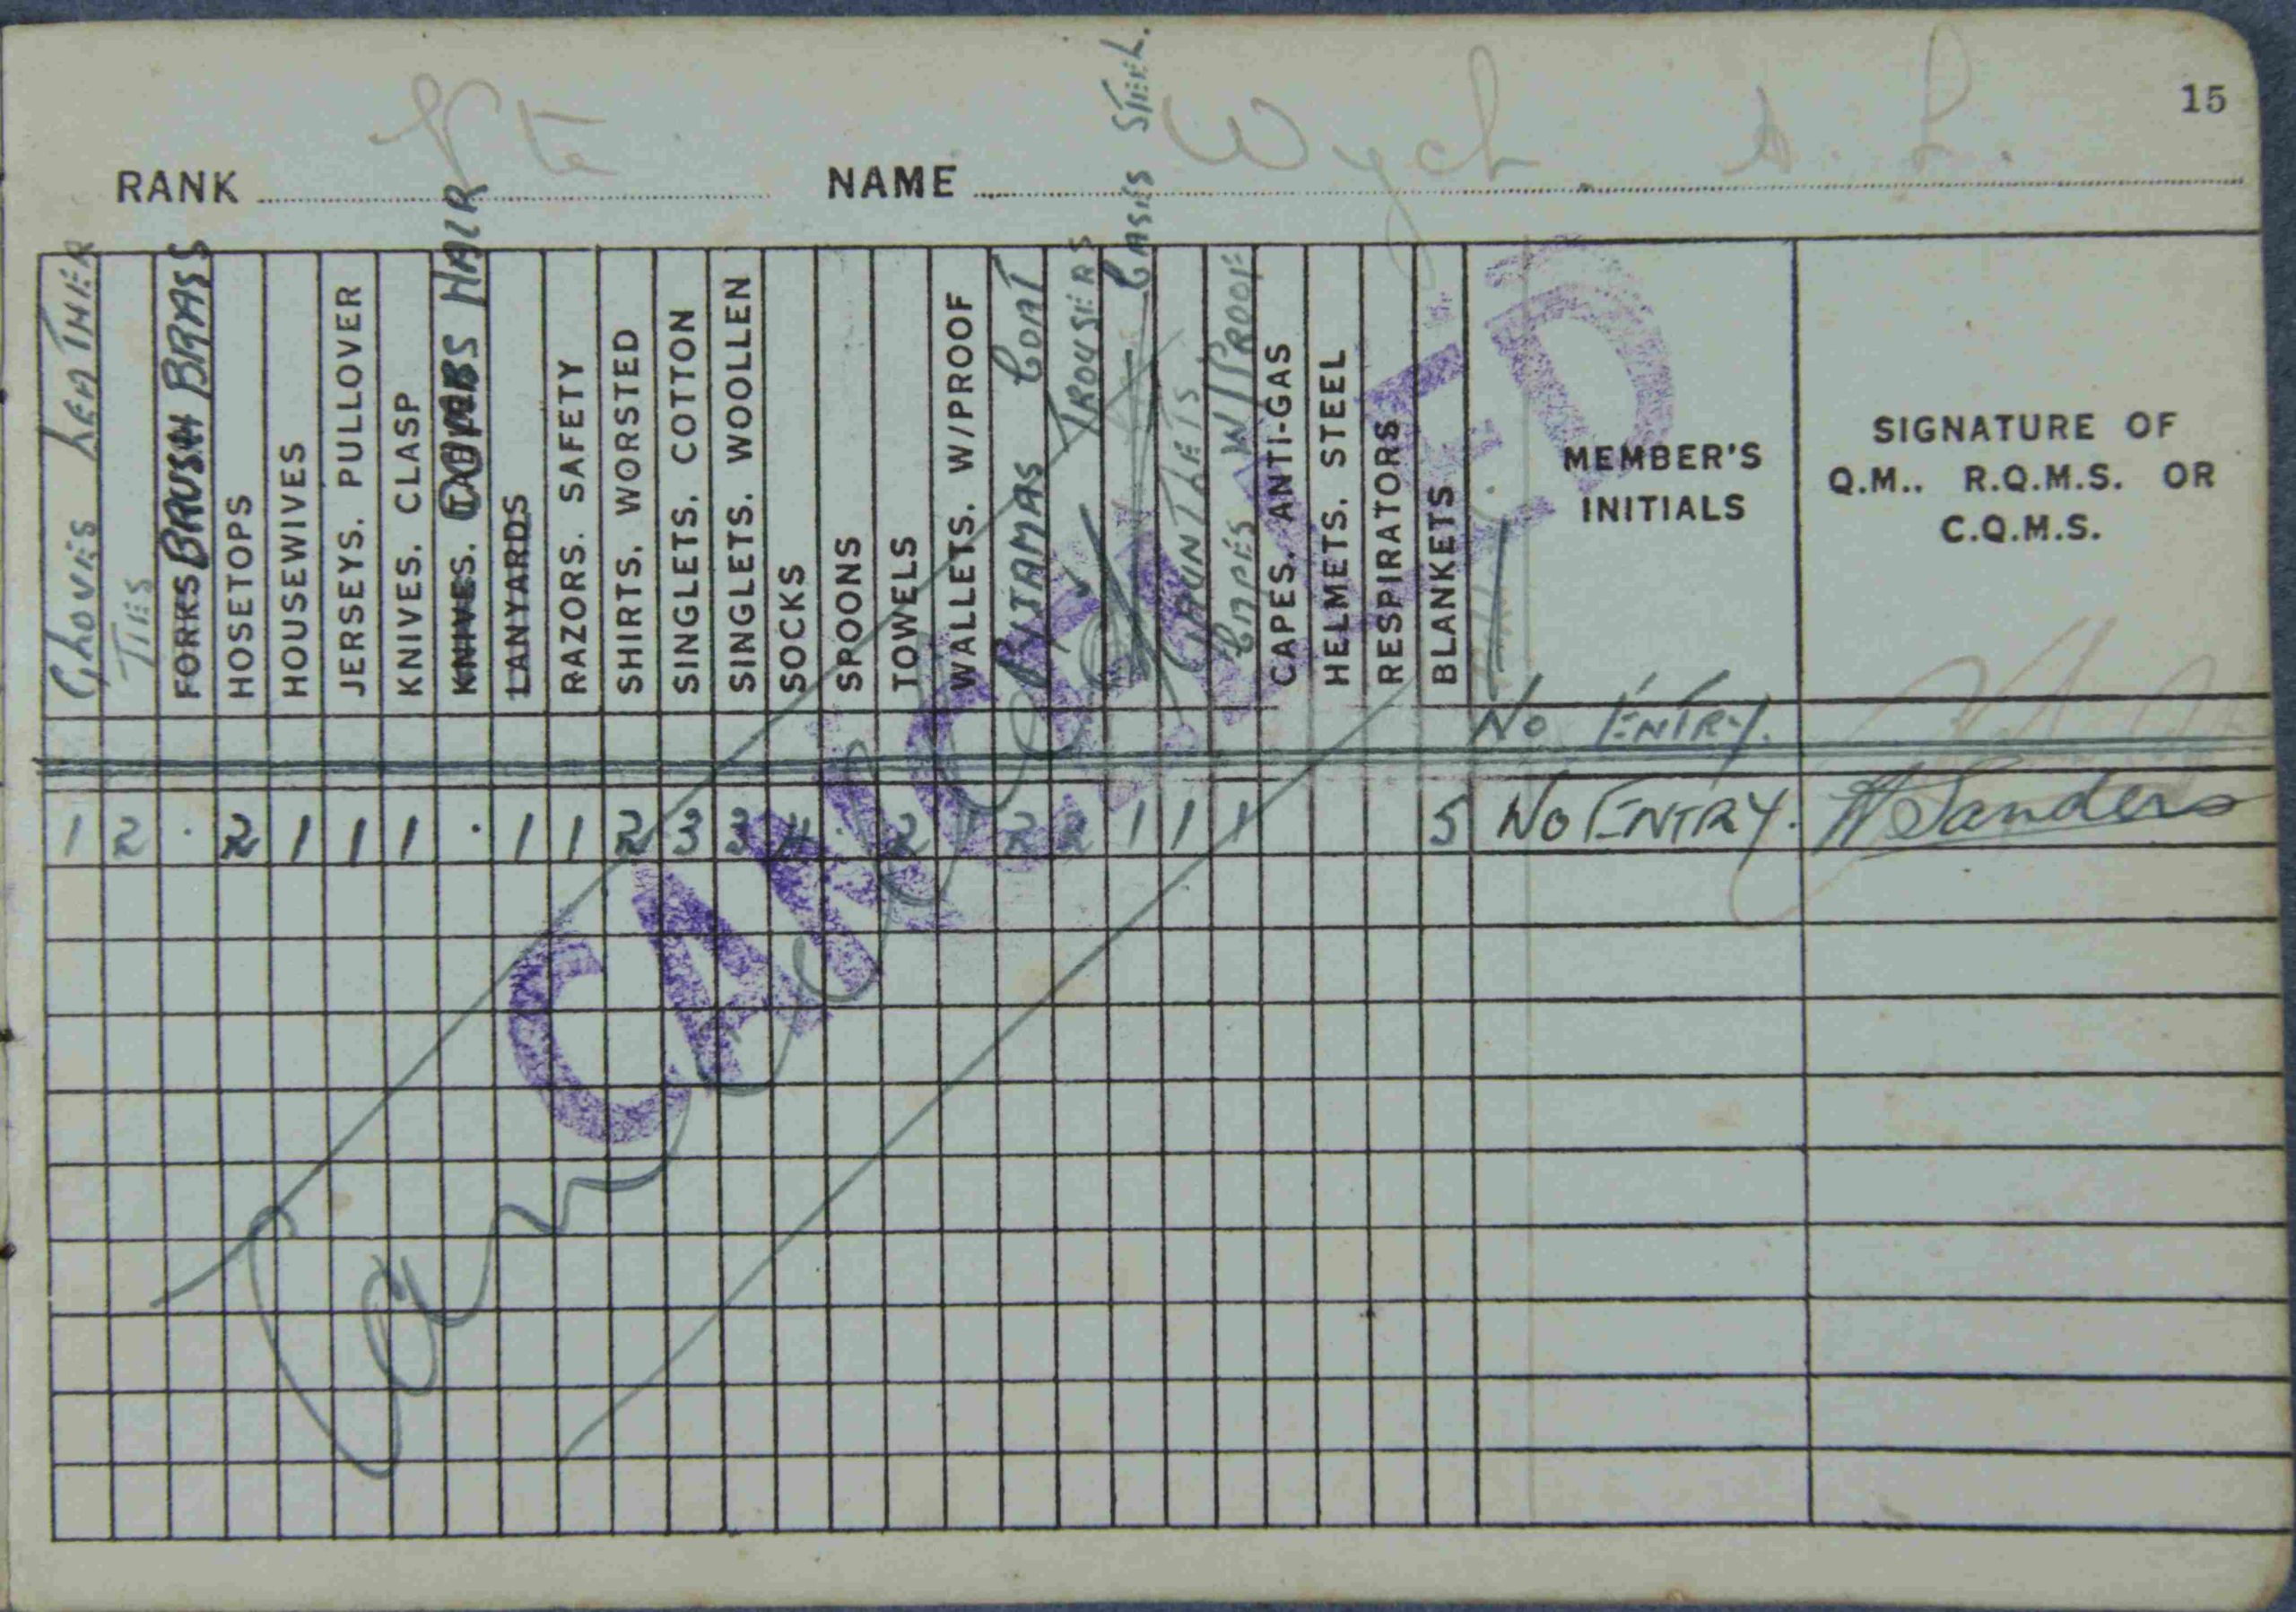 15
RANK Pte NAME Wych. A. L.
GLOVES LEATHER
TIES
FORKS BRUSH BRASS
HOSETOPS
HOUSEWIVES
JERSEYS. PULLOVER
KNIVES. CLASP
KNIVES. COMBS HAIR
LANYARDS
RAZORS. SAFETY
SHIRTS. WORSTED
SINGLETS. COTTON
SINGLETS. WOOLLEN
SOCKS
SPOONS
TOWELS
WALLETS. W/PROOF
PYJAMAS COAT
TROUSERS
CASES STEEL.
GAUNTLETS
CAPES W/PROOF
CAPES. ANTI-GAS
HELMETS. STEEL
RESPIRATORS
BLANKETS
MEMBER'S
INITIALS
SIGNATURE OF
Q.M.. R.Q.M.S. OR
C.Q.M.S.
NO ENTRY.
1 2 . 2 1 1 1 . 1 1 2 3 3 4 . 2 1 2 2 1 1 1 5 NO ENTRY. W Sanders
CANCELLED
Cancelled